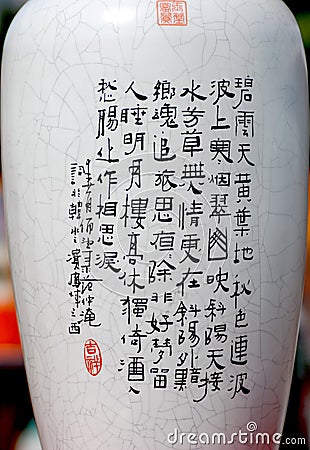 碧雲天黃葉地秋色連波
波上寒烟翠山映斜陽天接
水芳草無情更在斜陽外黯
鄉魂追旅思除非好夢留
人睡明月樓高休獨倚酒入
愁腸化作相思淚
范仲淹
之西
吉祥
dreamstime.com